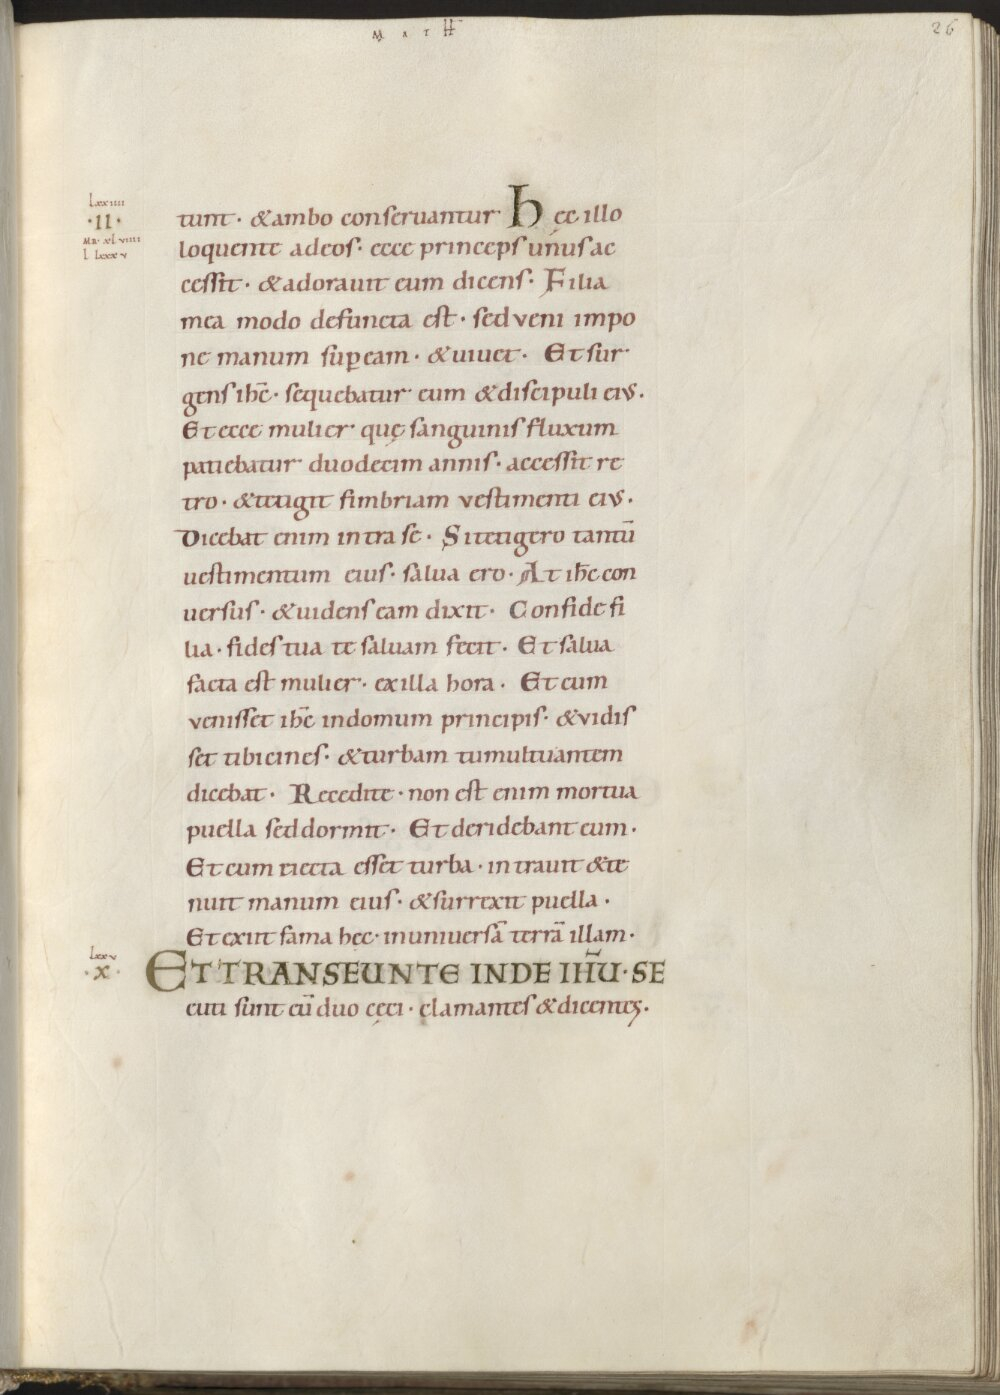 MATH
26
Lxxiiii
·II·
MR· xLviiii
L Lxxxv
tunt · & ambo conseruantur Hęc illo
loquente ad eos · ecce princeps unus ac
cessit · & adorauit eum dicens · Filia
mea modo defuncta est · sed veni impo
ne manum suꝑ eam · & uiuet · Et sur
gens ihc̄ · sequebatur eum & discipuli eius ·
Et ecce mulier quę sanguinis fluxum
patiebatur duodecim annis · accessit re
tro · & tetigit fimbriam vestimenti eius ·
Dicebat enim intra se · Si tetigero tantū
uestimentum eius · salua ero · At ihc̄ con
uersus · & uidens eam dixit · Confide fi
lia · fides tua te saluam fecit · Et salua
facta est mulier · ex illa hora · Et cum
venisset ihc̄ in domum principis · & vidis
set tibicines · & turbam tumultuantem
dicebat · Recedite · non est enim mortua
puella sed dormit · Et deridebant eum ·
Et cum eiecta esset turba · intrauit & te
nuit manum eius · & surrexit puella ·
Et exiit fama hęc · in uniuersā terrā illam ·
Lxxv
·X·
ET TRANSEUNTE INDE IHŪ · SE
cuti sunt eū duo cęci · clamantes & dicentes ·